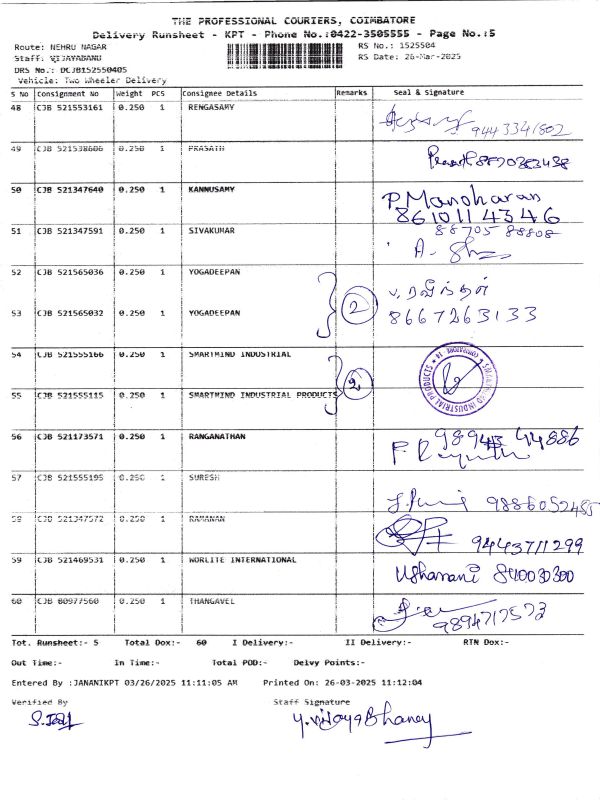 THE PROFESSIONAL COURIERS, COIMBATORE
Delivery Runsheet - KPT - Phone No.:0422-3505555 - Page No.:5
Route: NEHRU NAGAR RS No.: 1525504
Staff: VIJAYABANU RS Date: 26-Mar-2025
DRS No.: DCJB152550405
Vehicle: Two Wheeler Delivery
S No Consignment No Weight PCS Consignee Details Remarks Seal & Signature
48 CJB 521553161 0.250 1 RENGASAMY
9443341802
49 CJB 521538606 0.250 1 PRASATH Prasath 8870383438
50 CJB 521347640 0.250 1 KANNUSAMY P. Manoharan
8610114346
51 CJB 521347591 0.250 1 SIVAKUMAR 88705 88808
52 CJB 521565036 0.250 1 YOGADEEPAN
2
53 CJB 521565032 0.250 1 YOGADEEPAN 8667263133
54 CJB 521555166 0.250 1 SMARTMIND INDUSTRIAL
2
55 CJB 521555115 0.250 1 SMARTMIND INDUSTRIAL PRODUCTS
56 CJB 521173571 0.250 1 RANGANATHAN 98943 44886
57 CJB 521555195 0.250 1 SURESH 9886052455
58 CJB 521347572 0.250 1 RAMANAN
9443711299
59 CJB 521469531 0.250 1 WORLITE INTERNATIONAL Usharani 840030300
60 CJB 80977560 0.250 1 THANGAVEL
9894717573
Tot. Runsheet:- 5 Total Dox:- 60 I Delivery:- II Delivery:- RTN Dox:-
Out Time:- In Time:- Total POD:- Delvy Points:-
Entered By :JANANIKPT 03/26/2025 11:11:05 AM Printed On: 26-03-2025 11:12:04
Verified By Staff Signature
Y. Vijaya Bhaney